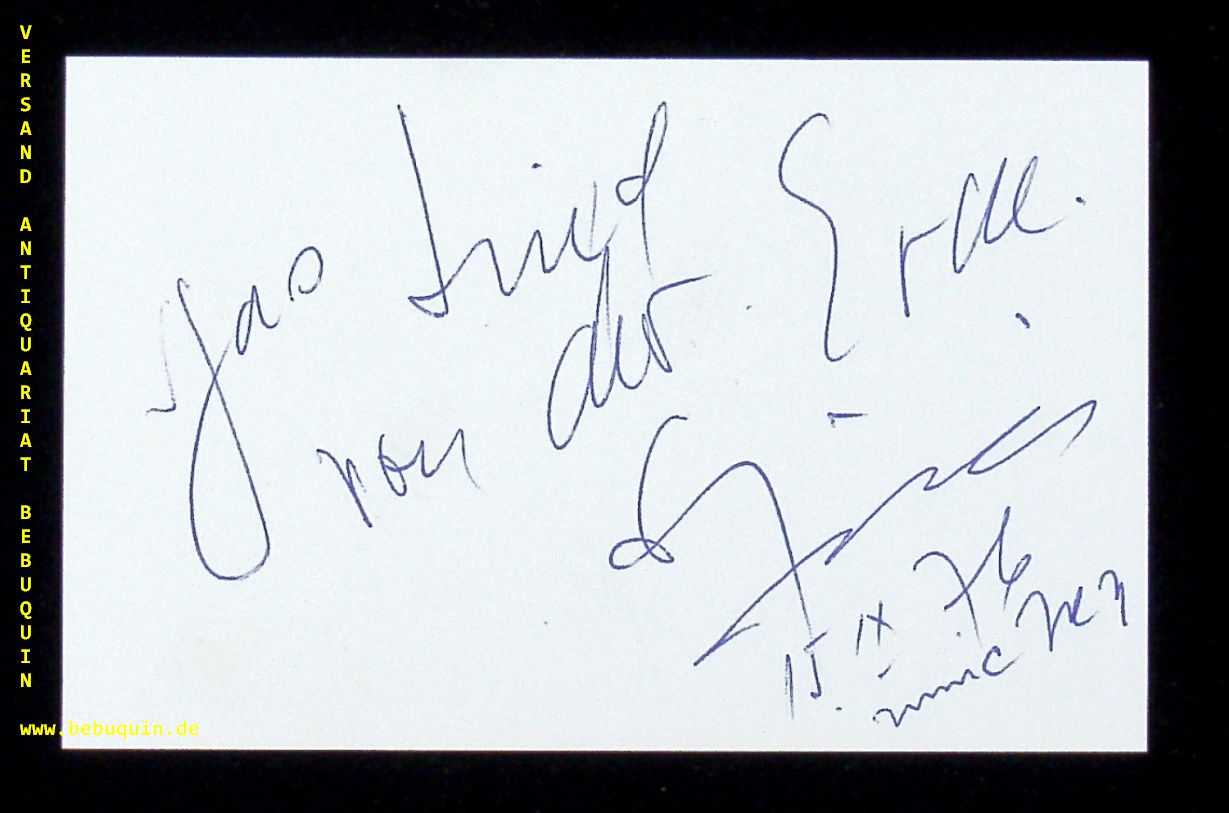 VERSAND ANTIQUARIAT BEBUQUIN
www.bebuquin.de
Das Lied
von der Erde.
15. IX 76
München